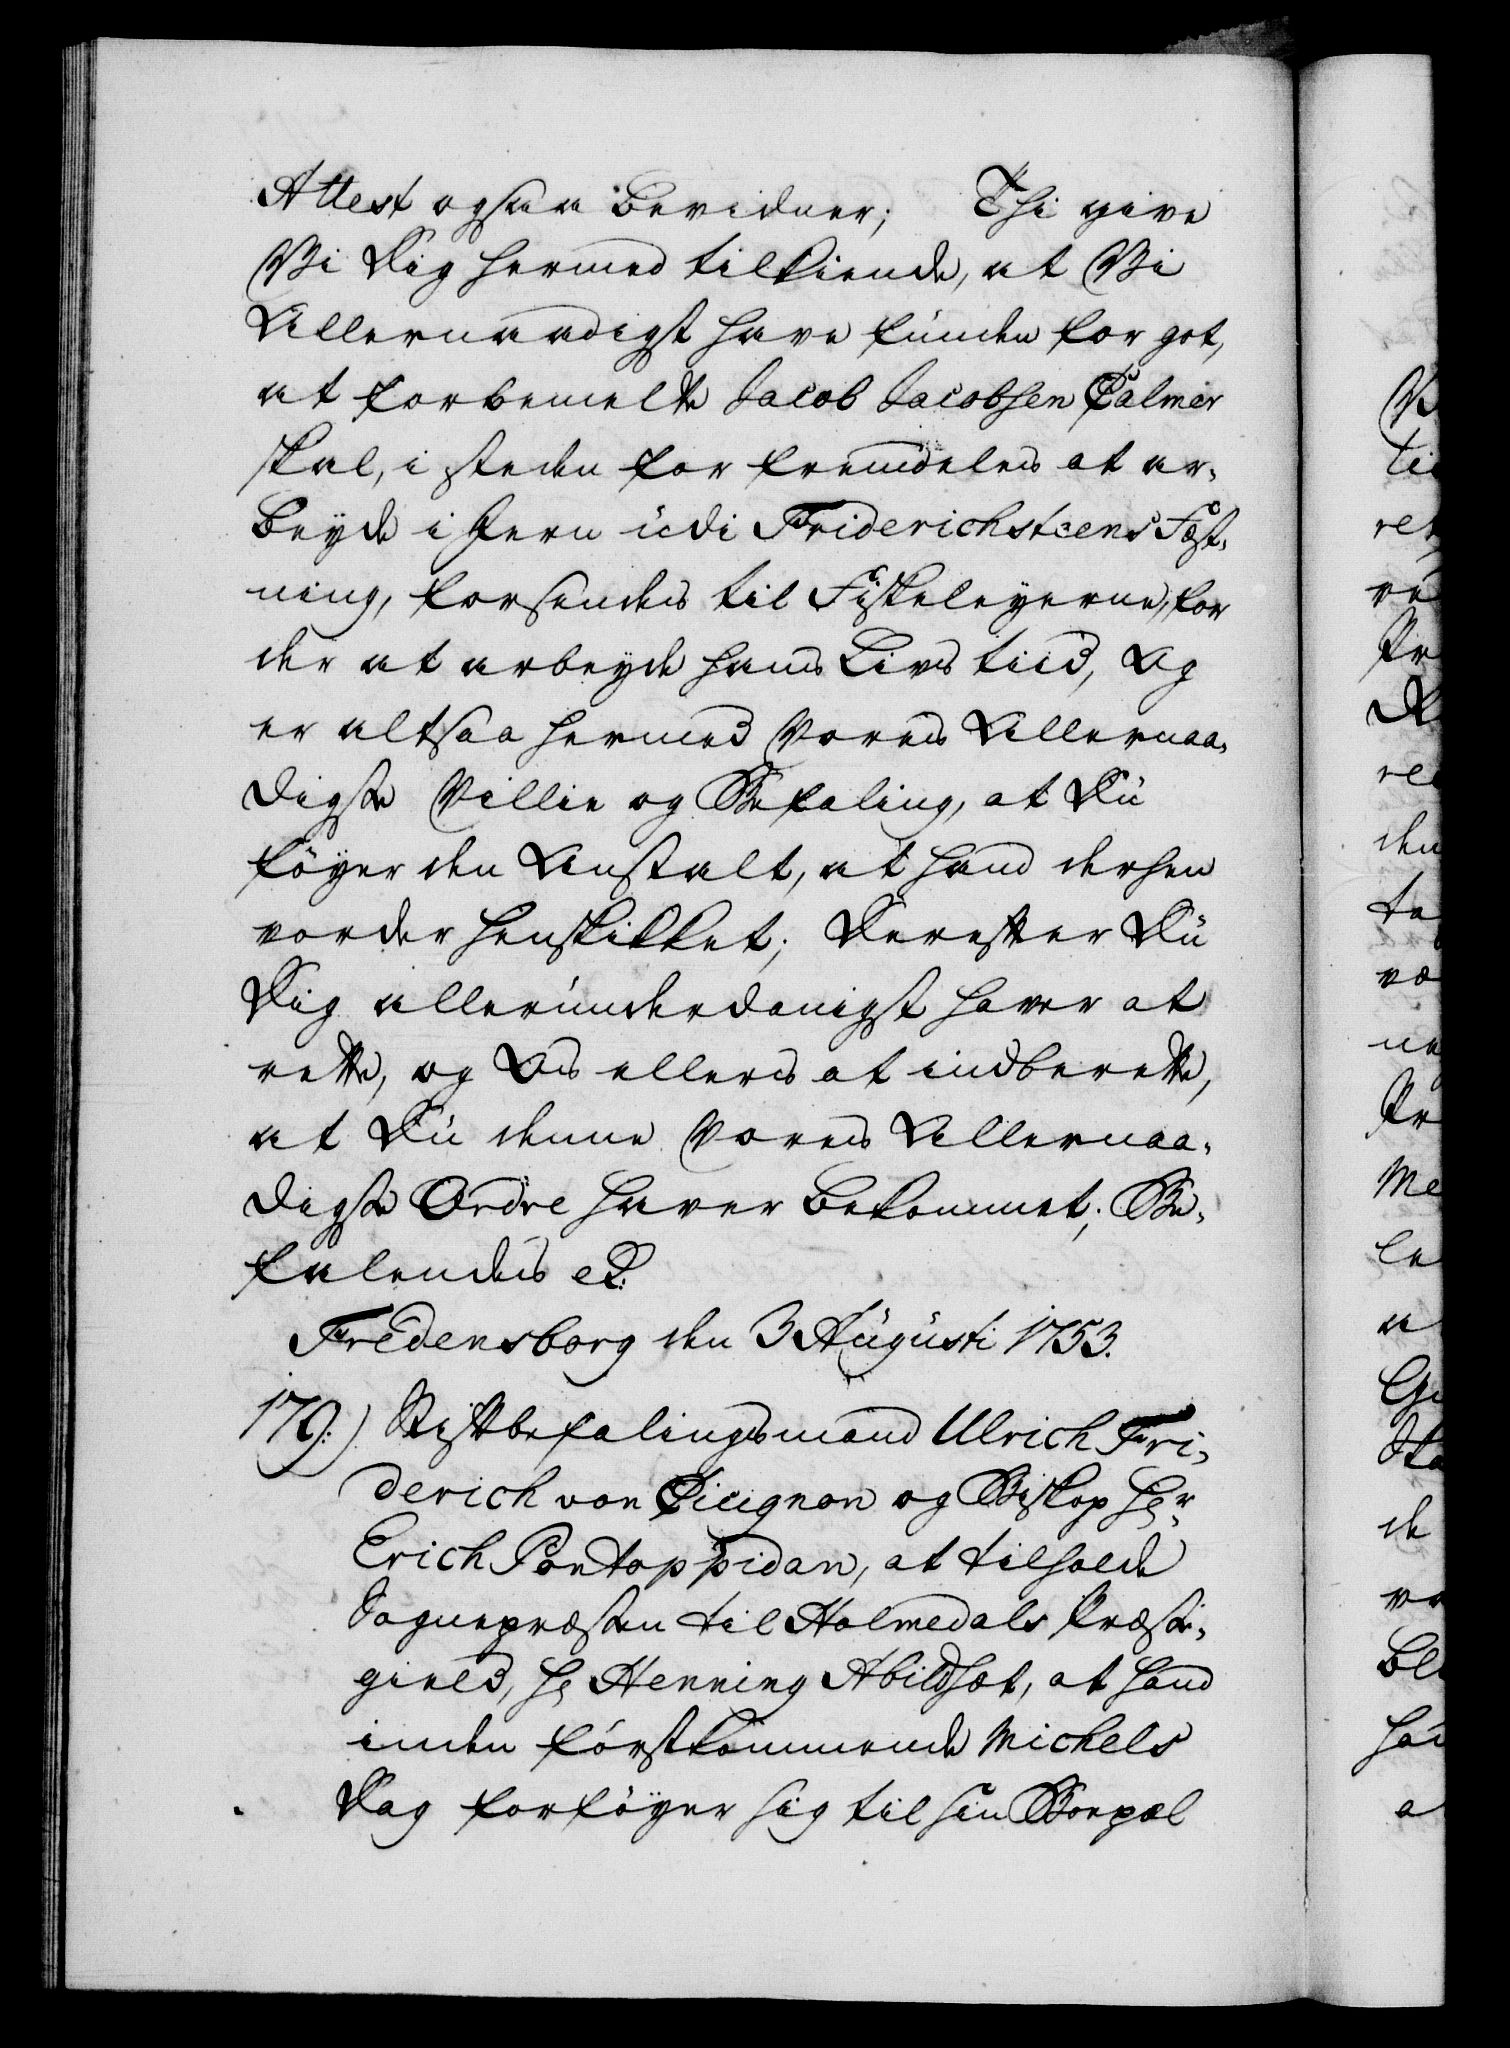 Attest ogsaa bevidner; Thi give
Vi Dig hermed tilkiende, at Vi
Allernaadigst have funden for got,
at forbemelte Jacob Jacobsen Calmer
skal, i steden for fremdeles at ar-
beyde i Jern udi Friderichsteens Fæst-
ning, forsendes til Fiskeleyerne, for
der at arbeyde hans Livs tiid, Og
er altsaa hermed Vores Allernaa-
digste Villie og Befaling, at Du
föyer den Anstalt, at hand derhen
vorder henskikket; Derefter Du
Dig allerunderdanigst haver at
rette, og Os ellers at indberette,
at Du denne Vores Allernaa-
digste Ordre haver bekommet; Be-
falendes etc:
Fredensborg den 3 Augusti 1753.
179:) Stiftbefalingsmand Ulrich Fri-
derich von Cicignon og Biskop Hr.
Erich Pontoppidan, at tilholde
Sognepræsten til Holmedals Præste-
gield, Hr Henning Abildhöt, at hand
inden förstkommende Michels
Dag forföyer sig til sin Boepæl